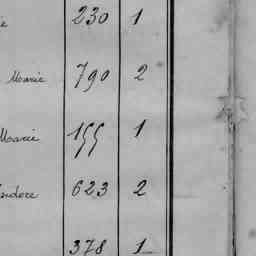 230 1
Marie 790 2
Marie 155 1
623 2
378 1